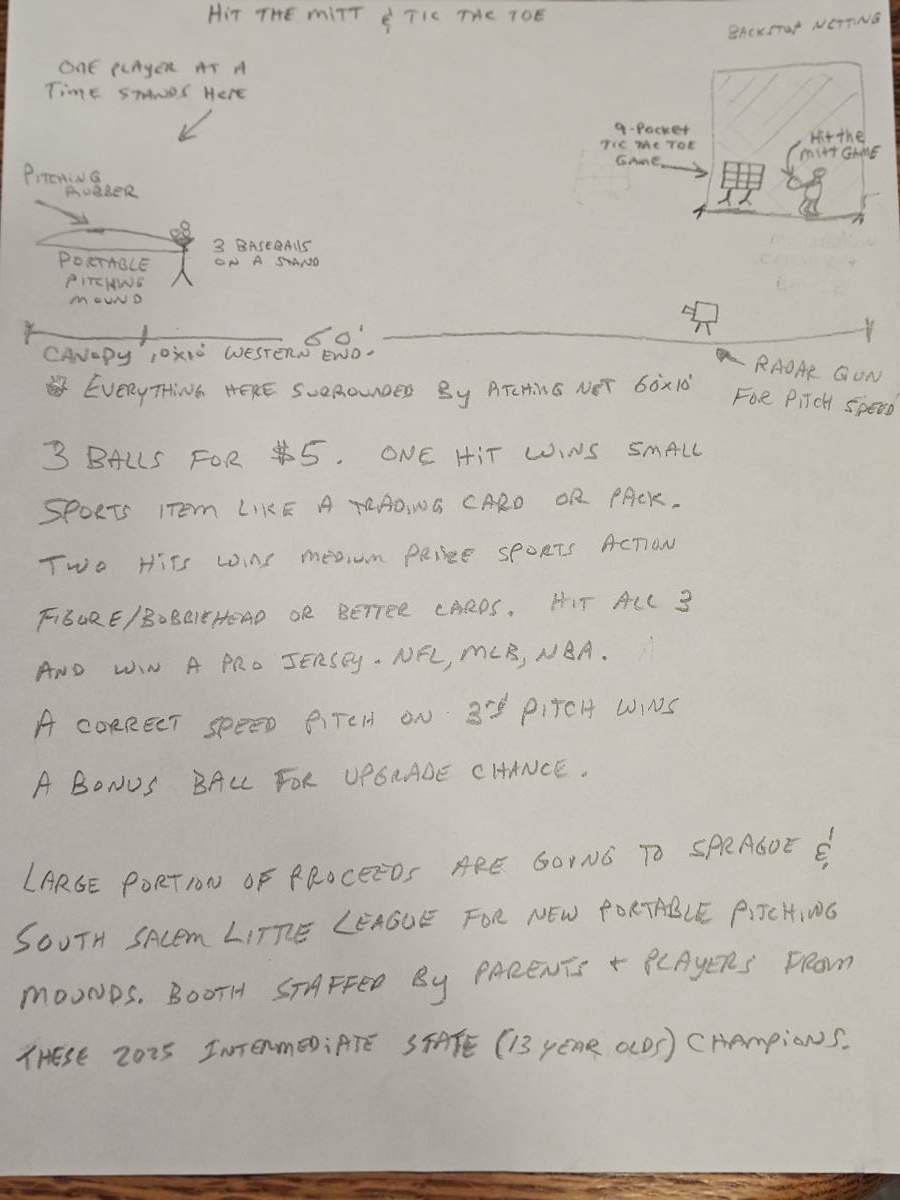 HIT THE MITT & TIC TAC TOE
BACKSTOP NETTING
ONE PLAYER AT A
TIME STANDS HERE
9-POCKET
TIC TAC TOE
GAME
Hit the
MITT GAME
PITCHING
RUBBER
3 BASEBALLS
ON A STAND
PORTABLE
PITCHING
MOUND
60'
CANOPY 10x10' WESTERN END.
RADAR GUN
FOR PITCH SPEED
EVERYTHING HERE SURROUNDED By ATCHING NET 60x10'
3 BALLS FOR $5. ONE HIT WINS SMALL
SPORTS ITEM LIKE A TRADING CARD OR PACK.
TWO HITS WINS MEDIUM PRIZE SPORTS ACTION
FIGURE/BOBBIEHEAD OR BETTER CARDS. HIT ALL 3
AND WIN A PRO JERSEY. NFL, MLB, NBA.
A CORRECT SPEED PITCH ON 3rd PITCH WINS
A BONUS BALL FOR UPGRADE CHANCE.
LARGE PORTION OF PROCEEDS ARE GOING TO SPRAGUE &
SOUTH SALEM LITTLE LEAGUE FOR NEW PORTABLE PITCHING
MOUNDS. BOOTH STAFFED By PARENTS + PLAYERS FROM
THESE 2025 INTERMEDIATE STATE (13 YEAR OLDS) CHAMPIONS.